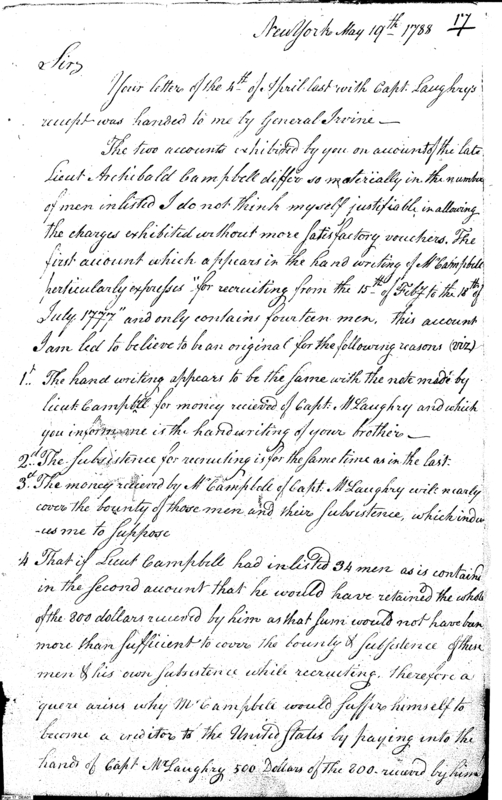 17
New York May 19th 1788
Sir,
Your letter of the 4th of April last with Capt. Laughry's
receipt was handed to me by General Irvine —
The two accounts exhibited by you on account of the late
Lieut Archibald Campbell differ so materially in the number
of men inlisted I do not think myself justifiable in allowing
the charges exhibited without more satisfactory vouchers. The
first account which appears in the hand writing of Mr Campbell
perticularly expresses "for recruiting from the 15th of Feby to the 18th of
July 1777" and only contains fourteen men, this account
I am led to believe to be an original for the following reasons (viz)
1st The hand writing appears to be the same with the note made by
lieut Campbell for money recieved of Capt. McLaughry and which
you inform me is the handwriting of your brother —
2d The Subsistence for recruiting is for the same time as in the last.
3d The money recieved by Mr Campbell of Capt. McLaughry will nearly
cover the bounty of those men and their subsistence, which indu-
-ces me to suppose
4 That if Lieut Campbell had inlisted 34 men as is contained
in the second account that he would have retained the whole
of the 800 dollars recieved by him as that sum would not have been
more than sufficient to cover the bounty & subsistence of these
men & his own subsistence while recruiting, therefore a
quere arises why Mr Campbell would suffer himself to
become a creditor to the United States by paying into the
hands of Capt McLaughry 500 Dollars of the 800 recieved by him